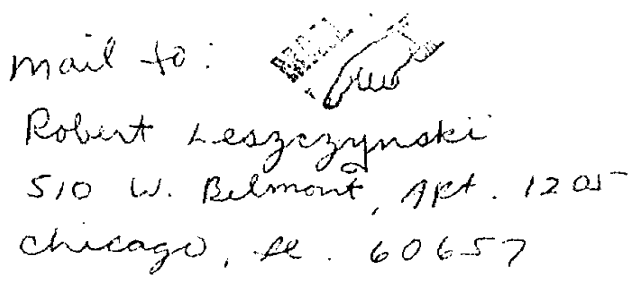 Mail to:
Robert Leszczynski
510 W. Belmont, Apt. 1205
Chicago, Il. 60657